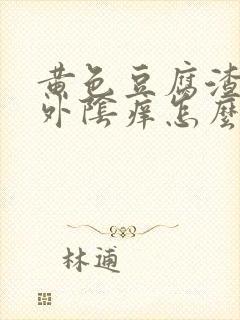 黄色豆腐渣
外陰痒怎麼
林逋